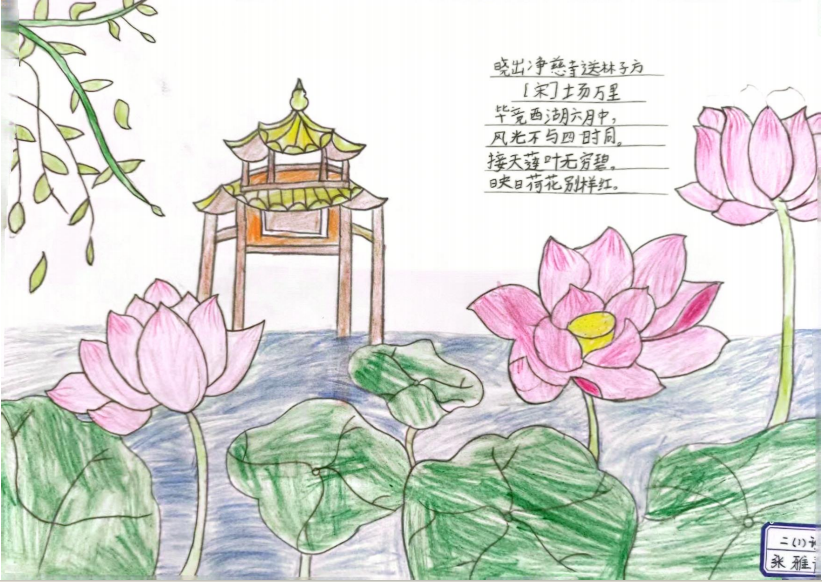 晓出净慈寺送林子方
[宋]杨万里
毕竟西湖六月中,
风光不与四时同。
接天莲叶无穷碧。
映日荷花别样红。
二(1)
张雅